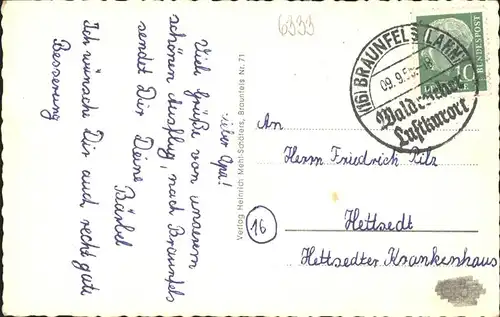 6333
Lieber Opa!
Viele Grüße von unserem
schönen Ausflug, nach Braunfels
sendet Dir Deine
Bärbel
Ich wünsche Dir auch recht gute
Besserung
Verlag Heinrich Mehl-Schäfers, Braunfels Nr. 71
(16) BRAUNFELS (LAHN)
09.9.
Luftkurort
10
BUNDESPOST
An
Herrn Friedrich Pilz
16
Hettsedt
Hettsedter Krankenhaus